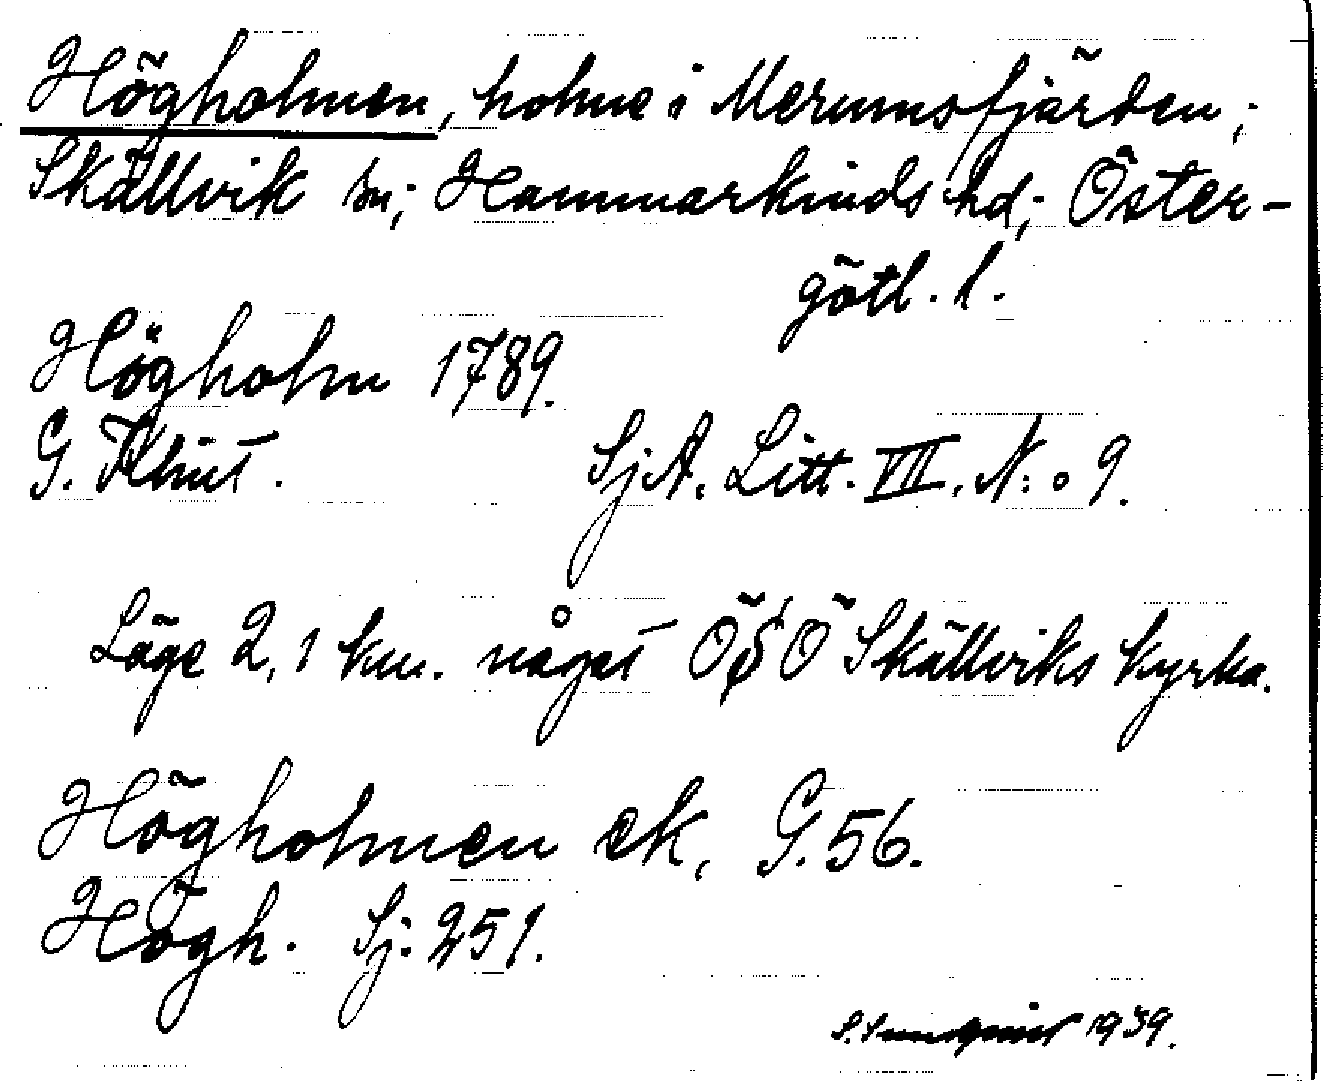 Högholmen, holme i Merumsfjärden;
Skällvik sn; Hammarkinds hd; Öster-
götl. l.
Högholm 1789.
G. Klint. SjA. Litt. VII. N:o 9.
Läge 2,1 km. något ÖSÖ Skällviks kyrka.
Högholmen ek, G. 56.
Högh. Sj. 251.
1939.